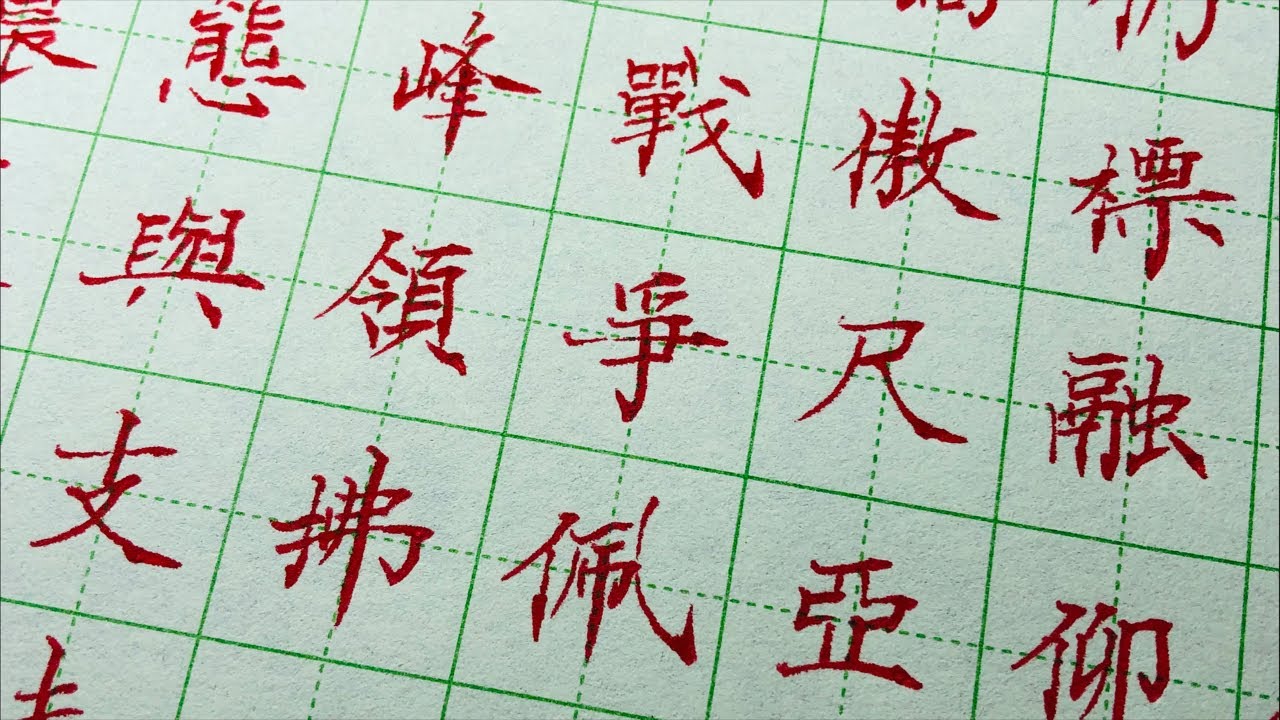 態峰戰傲標
與領爭尺融
支拂佩亞仰